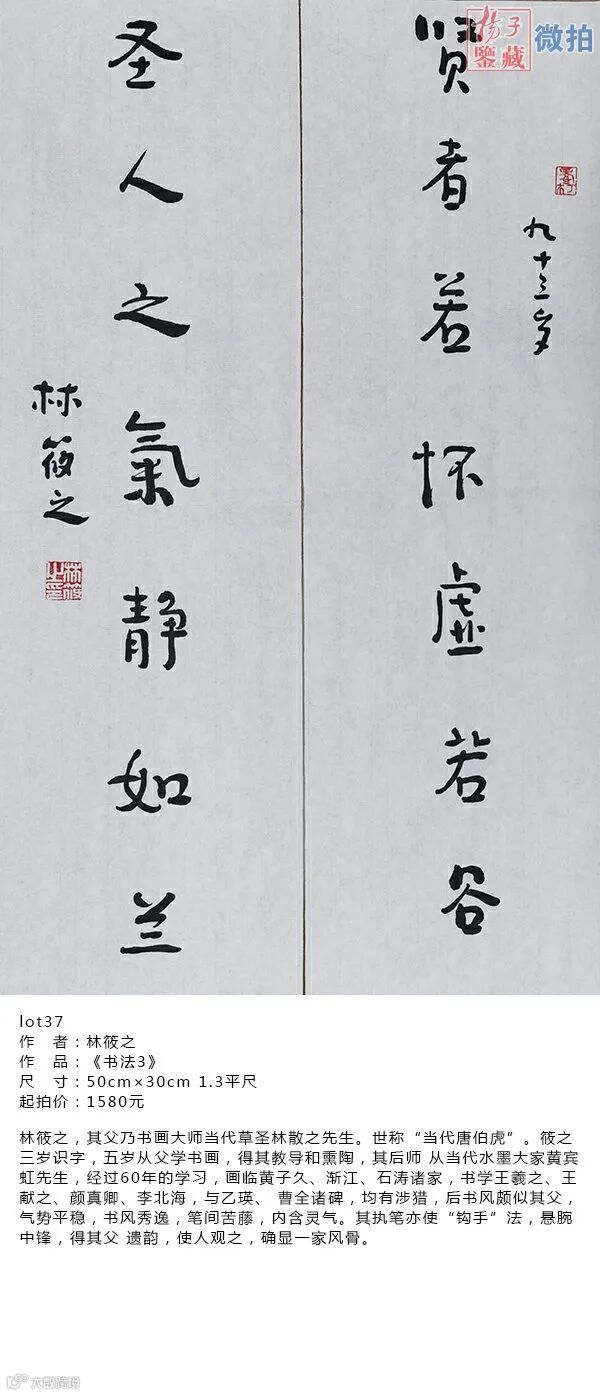 揚子
鑒藏
微拍
九十三岁
贤者若怀虚若谷
圣人之氣静如兰
林筱之
林筱之印
lot37
作 者：林筱之
作 品：《书法3》
尺 寸：50cm×30cm 1.3平尺
起拍价：1580元
林筱之，其父乃书画大师当代草圣林散之先生。世称“当代唐伯虎”。筱之
三岁识字，五岁从父学书画，得其教导和熏陶，其后师 从当代水墨大家黄宾
虹先生，经过60年的学习，画临黄子久、渐江、石涛诸家，书学王羲之、王
献之、颜真卿、李北海，与乙瑛、 曹全诸碑，均有涉猎，后书风颇似其父，
气势平稳，书风秀逸，笔间苦藤，内含灵气。其执笔亦使“钩手”法，悬腕
中锋，得其父 遗韵，使人观之，确显一家风骨。
大数跨境